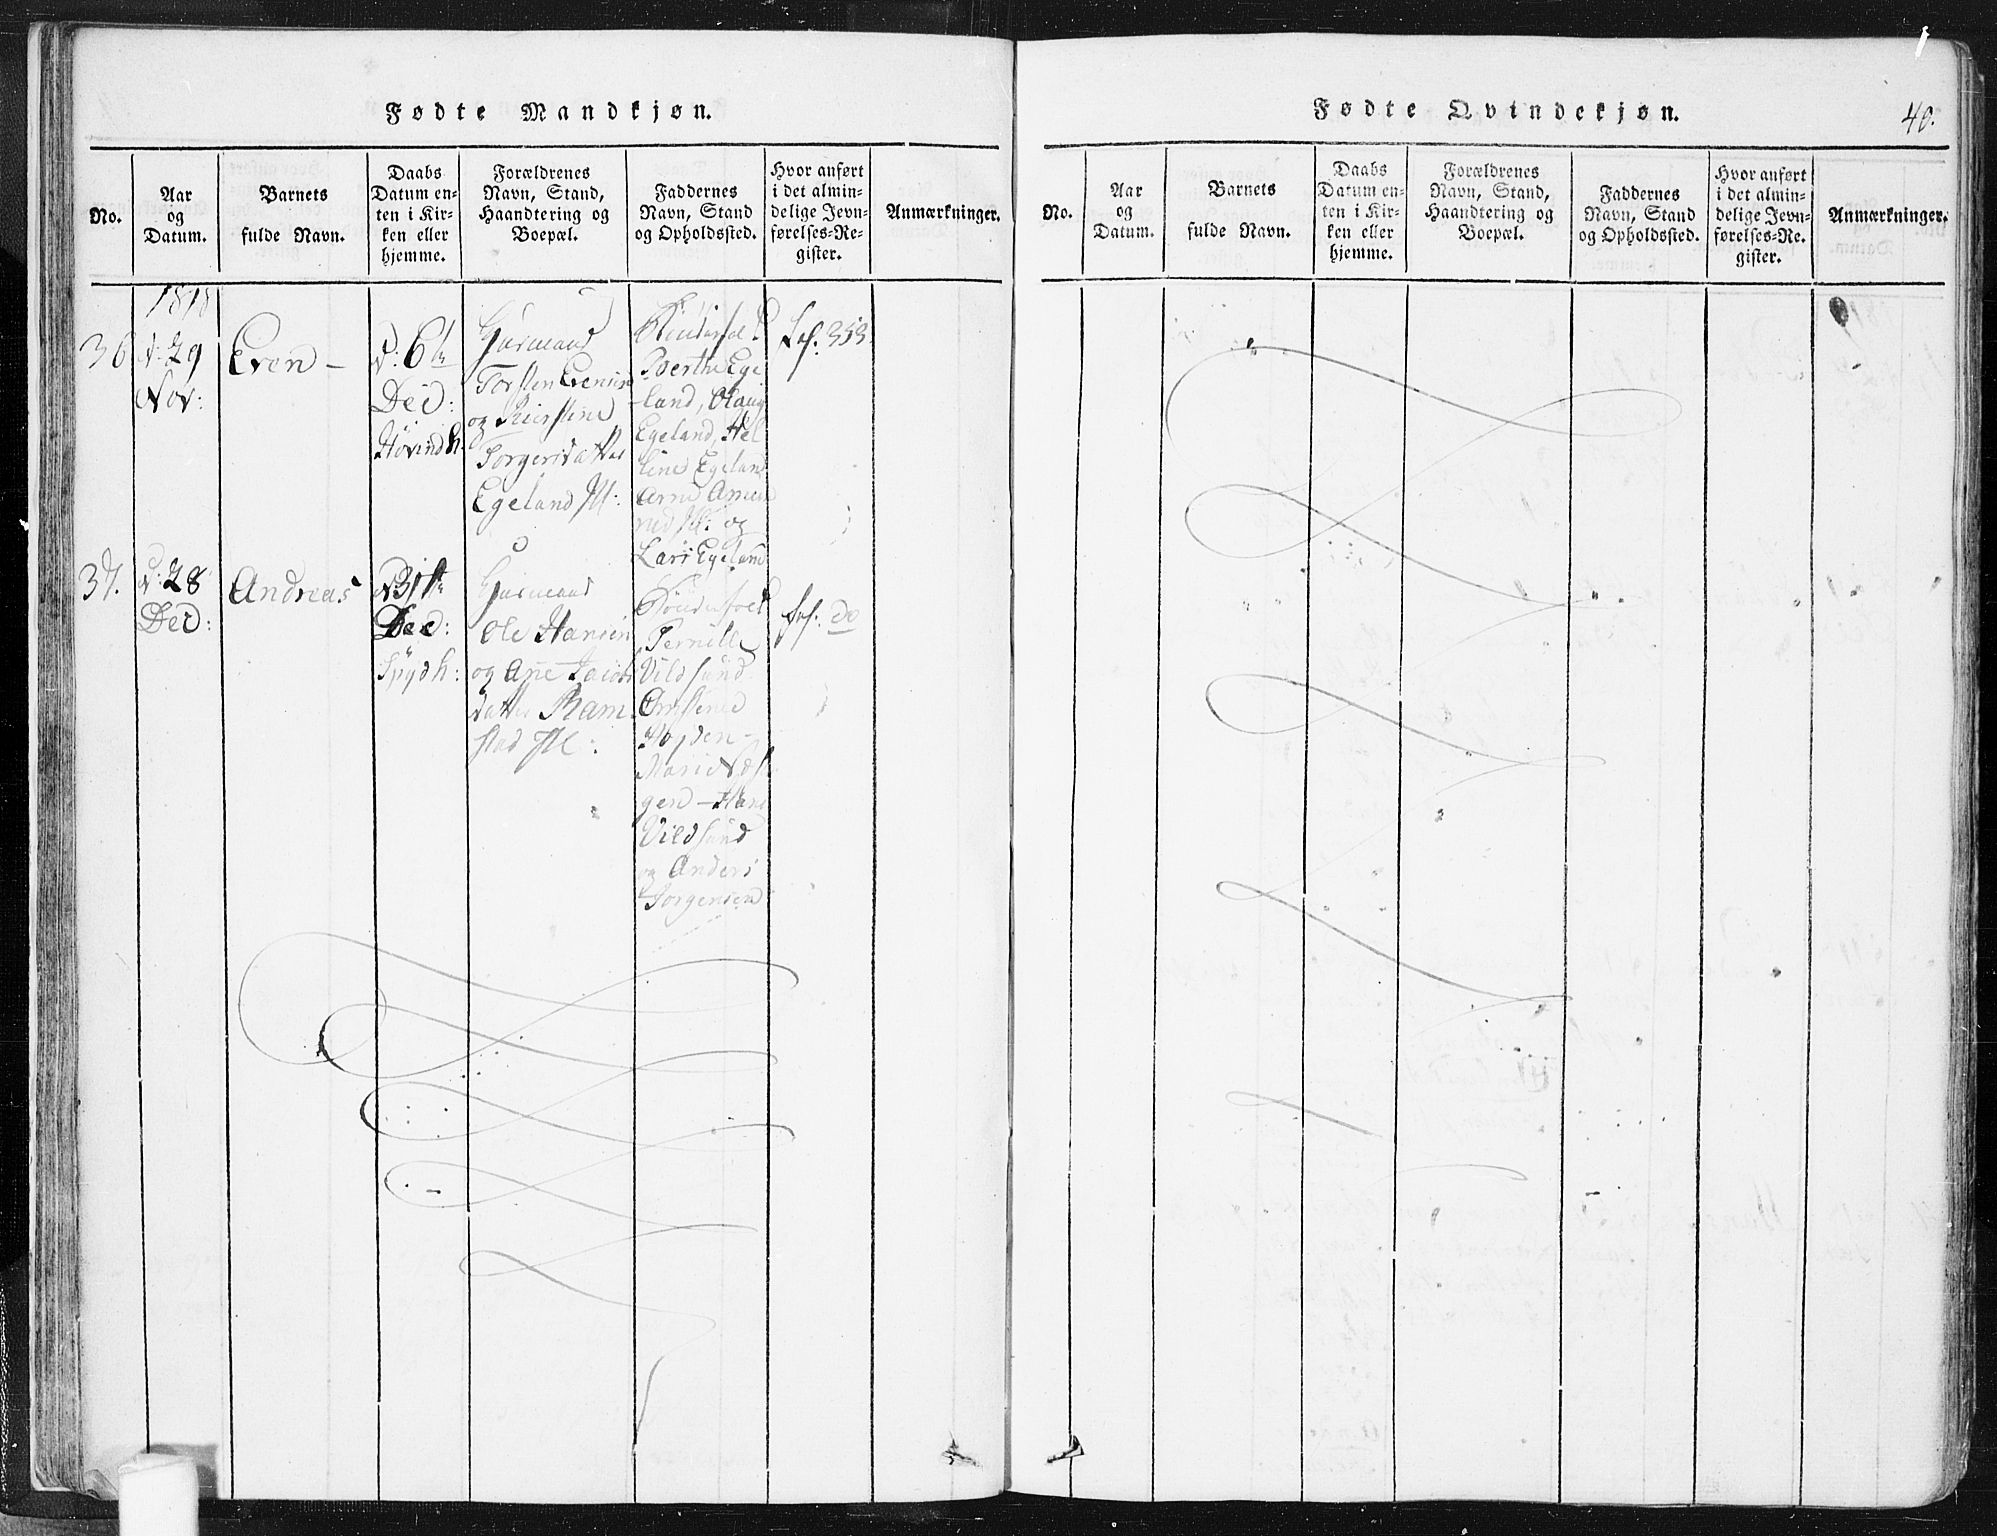 Fødte Mandkjøn.
No.
Aar
og
Datum.
Barnets
fulde Navn.
Daabs
Datum en-
ten i Kir-
ken eller
hjemme.
Forældrenes
Navn, Stand,
Haandtering og
Boepæl.
Faddernes
Navn, Stand
og Opholdssted.
Hvor anført
i det almin-
delige Jevn-
førelses-Re-
gister.
Anmærkninger.
1818
36
d: 29
Nov:
Even –
d: 6te
Dec:
Høvindh.
Gaardmand
Torsten Evensen
og Kierstine
Torgersdatter
Egeland Ill:
Berthe Ege
-land, Olaug
Egeland, Hel
Egeland
Arne
og
Lars Egeland
fol: 353.
37.
d: 28
Dec:
Andreas
d 31te
Dec:
Spydh:
Gaardmand
Ole Hansen
og Ane Jacobs
datter Ram
stad Ill:
Pernille
Vildsund
Højden –
Marie
gen – Hans
Vildsund
og Anders
Jorgensen
fol: do
Fødte Qvindekjøn.
40.
No.
Aar
og
Datum.
Barnets
fulde Navn.
Daabs
Datum en-
ten i Kir-
ken eller
hjemme.
Forældrenes
Navn, Stand,
Haandtering og
Boepæl.
Faddernes
Navn, Stand
og Opholdssted.
Hvor anført
i det almin-
delige Jevn-
førelses-Re.
gister.
Anmærkninger.